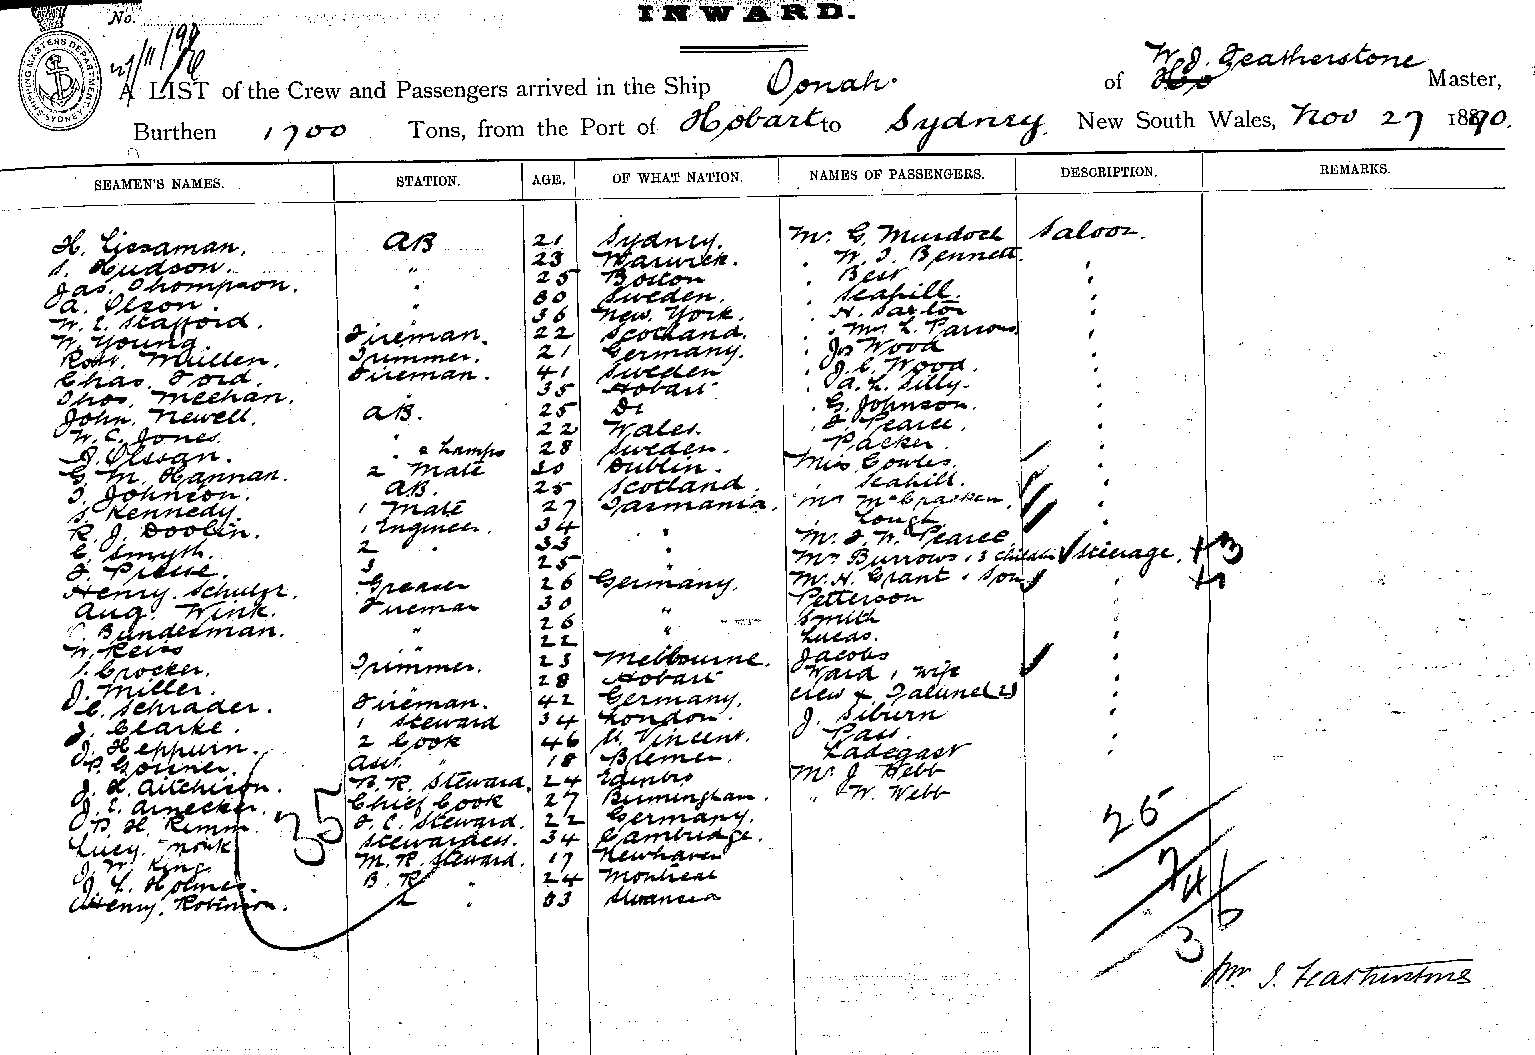 No.
INWARD.
27/11/90
W. J. Featherstone
A LIST of the Crew and Passengers arrived in the Ship Oonah. of Master,
Burthen 1700 Tons, from the Port of Hobart to Sydney, New South Wales, Nov 27 1890.
SEAMEN'S NAMES. STATION. AGE. OF WHAT NATION. NAMES OF PASSENGERS. DESCRIPTION. REMARKS.
H. Lissaman. AB 21 Sydney. Mr. G. Murdoch Saloon.
S. Hudson. " 23 Warwick. W. J. Bennett.
Jas. Thompson. " 25 Boston Best
A. Olson. " 30 Sweden. Seahill.
W. E. Stafford. " 36 New York. H.
W. Young. Fireman. 22 Scotland. Mrs L. Parrows
Robt. Mullen. Trimmer. 21 Germany. Jos Wood
Chas. Ford. Fireman. 41 Sweden J. C. Wood.
Thos. Meehan. 35 Hobart A. L. Silly.
John. Newell. AB. 25 Do G. Johnson.
W. C. Jones. " 22 Wales. Pearce.
J. Olsvan. " & Lamps 28 Sweden. Packer.
G. M. Hannan. 2 Mate 30 Dublin. Miss Cowles
J. Johnson. AB. 25 Scotland Seahill.
S. Kennedy 1 Mate 27 Tasmania. Mr McCracken,
R. J. Doolin. 1 Engineer. 34 " Lough
C. Smyth. 2 " 33 " Mr. F. W. Pearce
3 25 " Mrs Burrows & 3 children Steerage. + 3
Henry. Schulzr. Greaser 26 Germany. Mr. H. Grant & Son
Aug. Wink. Fireman 30 " Petterson
Bundesman. " 26 " Smith
W. Reiss 22 Lucas.
S. Crocker. Trimmer. 23 Melbourne. Jacobs
J. Miller. 28 Hobart Ward & wife
C. Schrader. Fireman. 42 Germany. Crew
J. Clarke. 1 Steward 34 London. J. Siburn
J. Heppurn. 2 Cook 46 St. Vincent. Pass.
P. Asst. " 18 Bremen. Ladegast
J. H. Aitchison. B. R. Steward. 24 Edinbro Mr. J. Webb
J. E. Arnecker. Chief Cook 27 Birmingham. " W. Webb
P. H. Kimm. F. C. Steward. 22 Germany.
Lucy. Monk Stewardess. 34 Cambridge.
J. W. King M. R. Steward. 17 Newhaven
J. L. Holmes. B. R " 24 Montreal
Henry. Robinson. 2 " 33 Swansea
35
26
Wm J. Featherstone